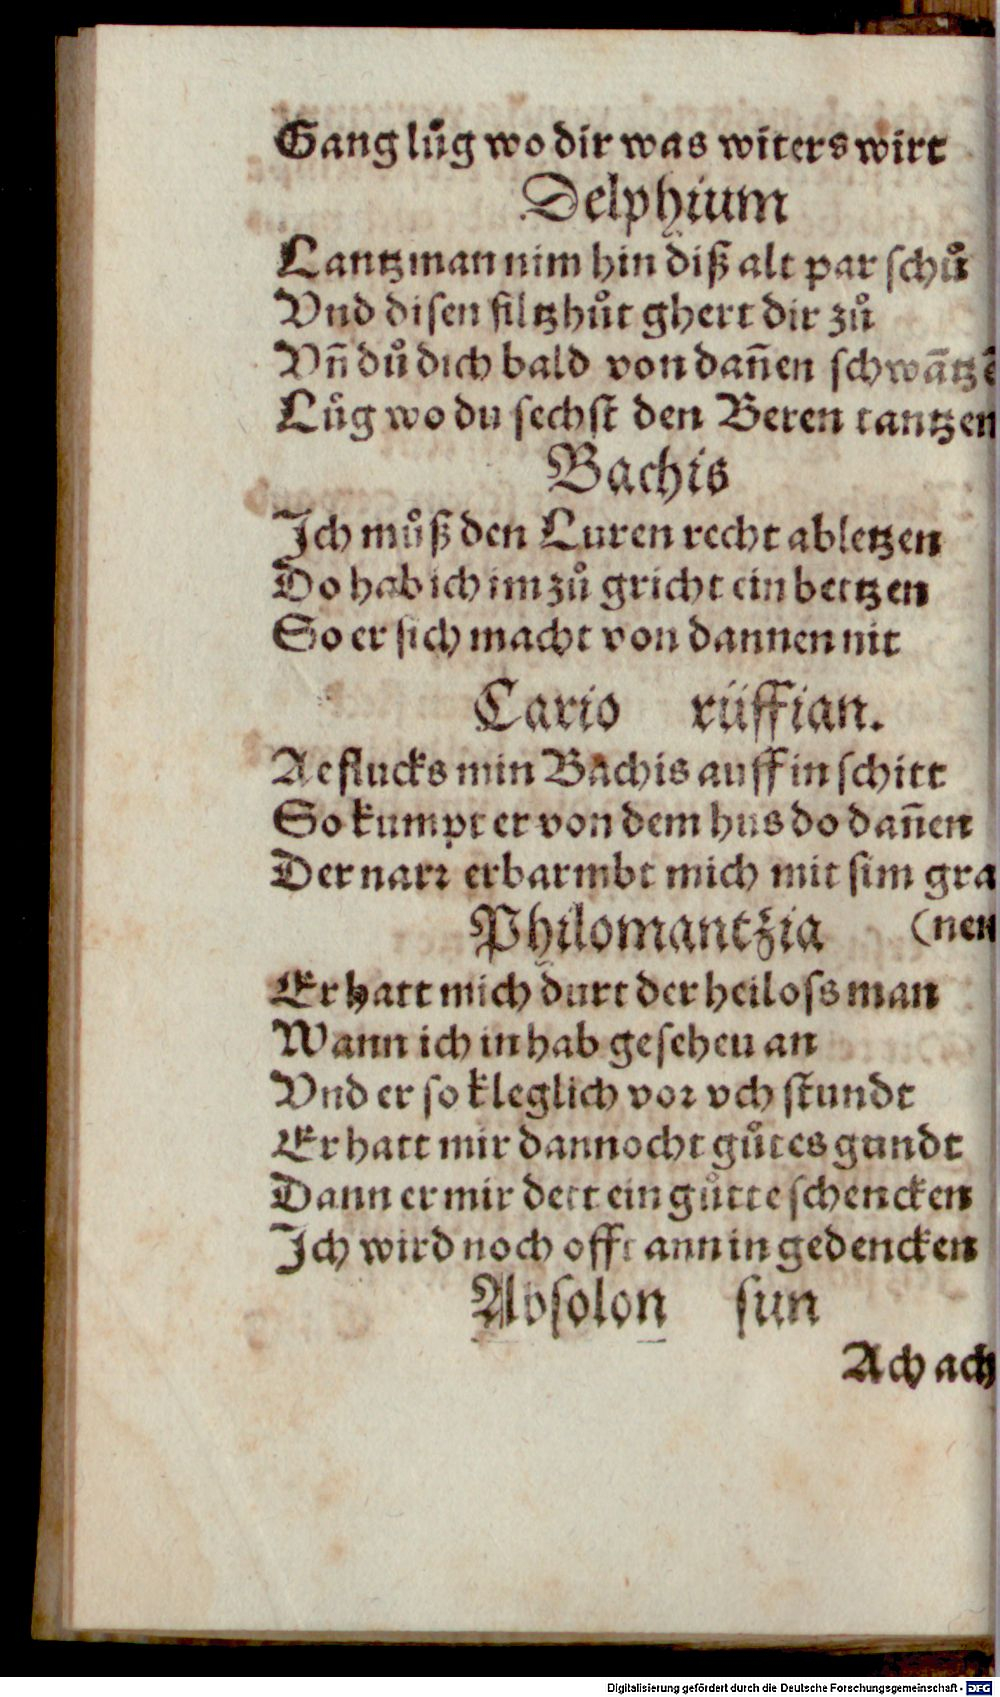 Gang lůg wo dir was witers wirt
Delphium
Lantzman nim hin diß alt par schů
Vnd disen filtzhůt ghert dir zů
Vñ důdich bald von dañen schwātzē
Lůg wo du sechst den Beren tantzen
Bachis
Ich můß den Luren recht abletzen
Do hab ich im zů gricht ein bettzen
So er sich macht von dannen nit
Cario rüffian.
Ae flucks min Bachis auff in schitt
So kumpt er von dem hus do dañen
Der narr erbarmbt mich mit sim gra
Philomantzia (nen
Er hatt mich durt der heiloss man
Wann ich in hab geseheu an
Vnd er so kleglich vor vch stundt
Er hatt mir dannocht gůtes gundt
Dann er mir dett ein gůtte schencken
Ich wird noch offt ann in gedencken
Absolon sun
Ach ach
Digitalisierung gefördert durch die Deutsche Forschungsgemeinschaft - DFG